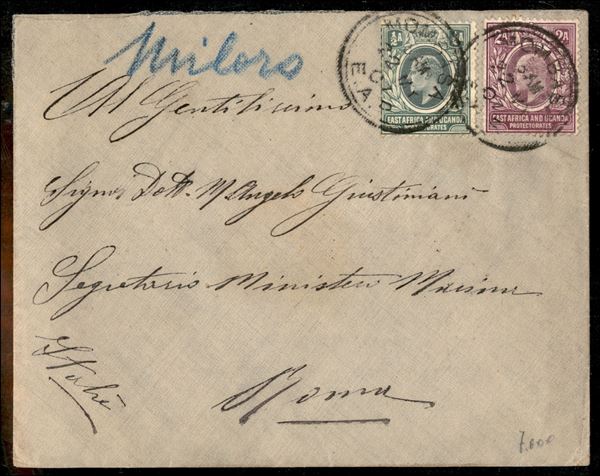 Miloro
½A
2A
EAST AFRICA AND UGANDA
PROTECTORATES
EAST AFRICA AND UGANDA
PROTECTORATES
All Gentilissimo
Signor Dott. M Angelo Giustiniani
Segretario Ministero Marina
Roma
Italie
7.000